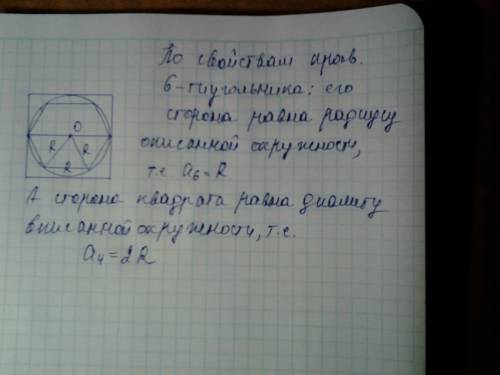 По свойствам прав.
6-тиугольника: его
сторона равна радиусу
описанной окружности,
т.е a₆ = R
А сторона квадрата равна диаметру
вписанной окружности, т.е.
a₄ = 2R
O
R R
R